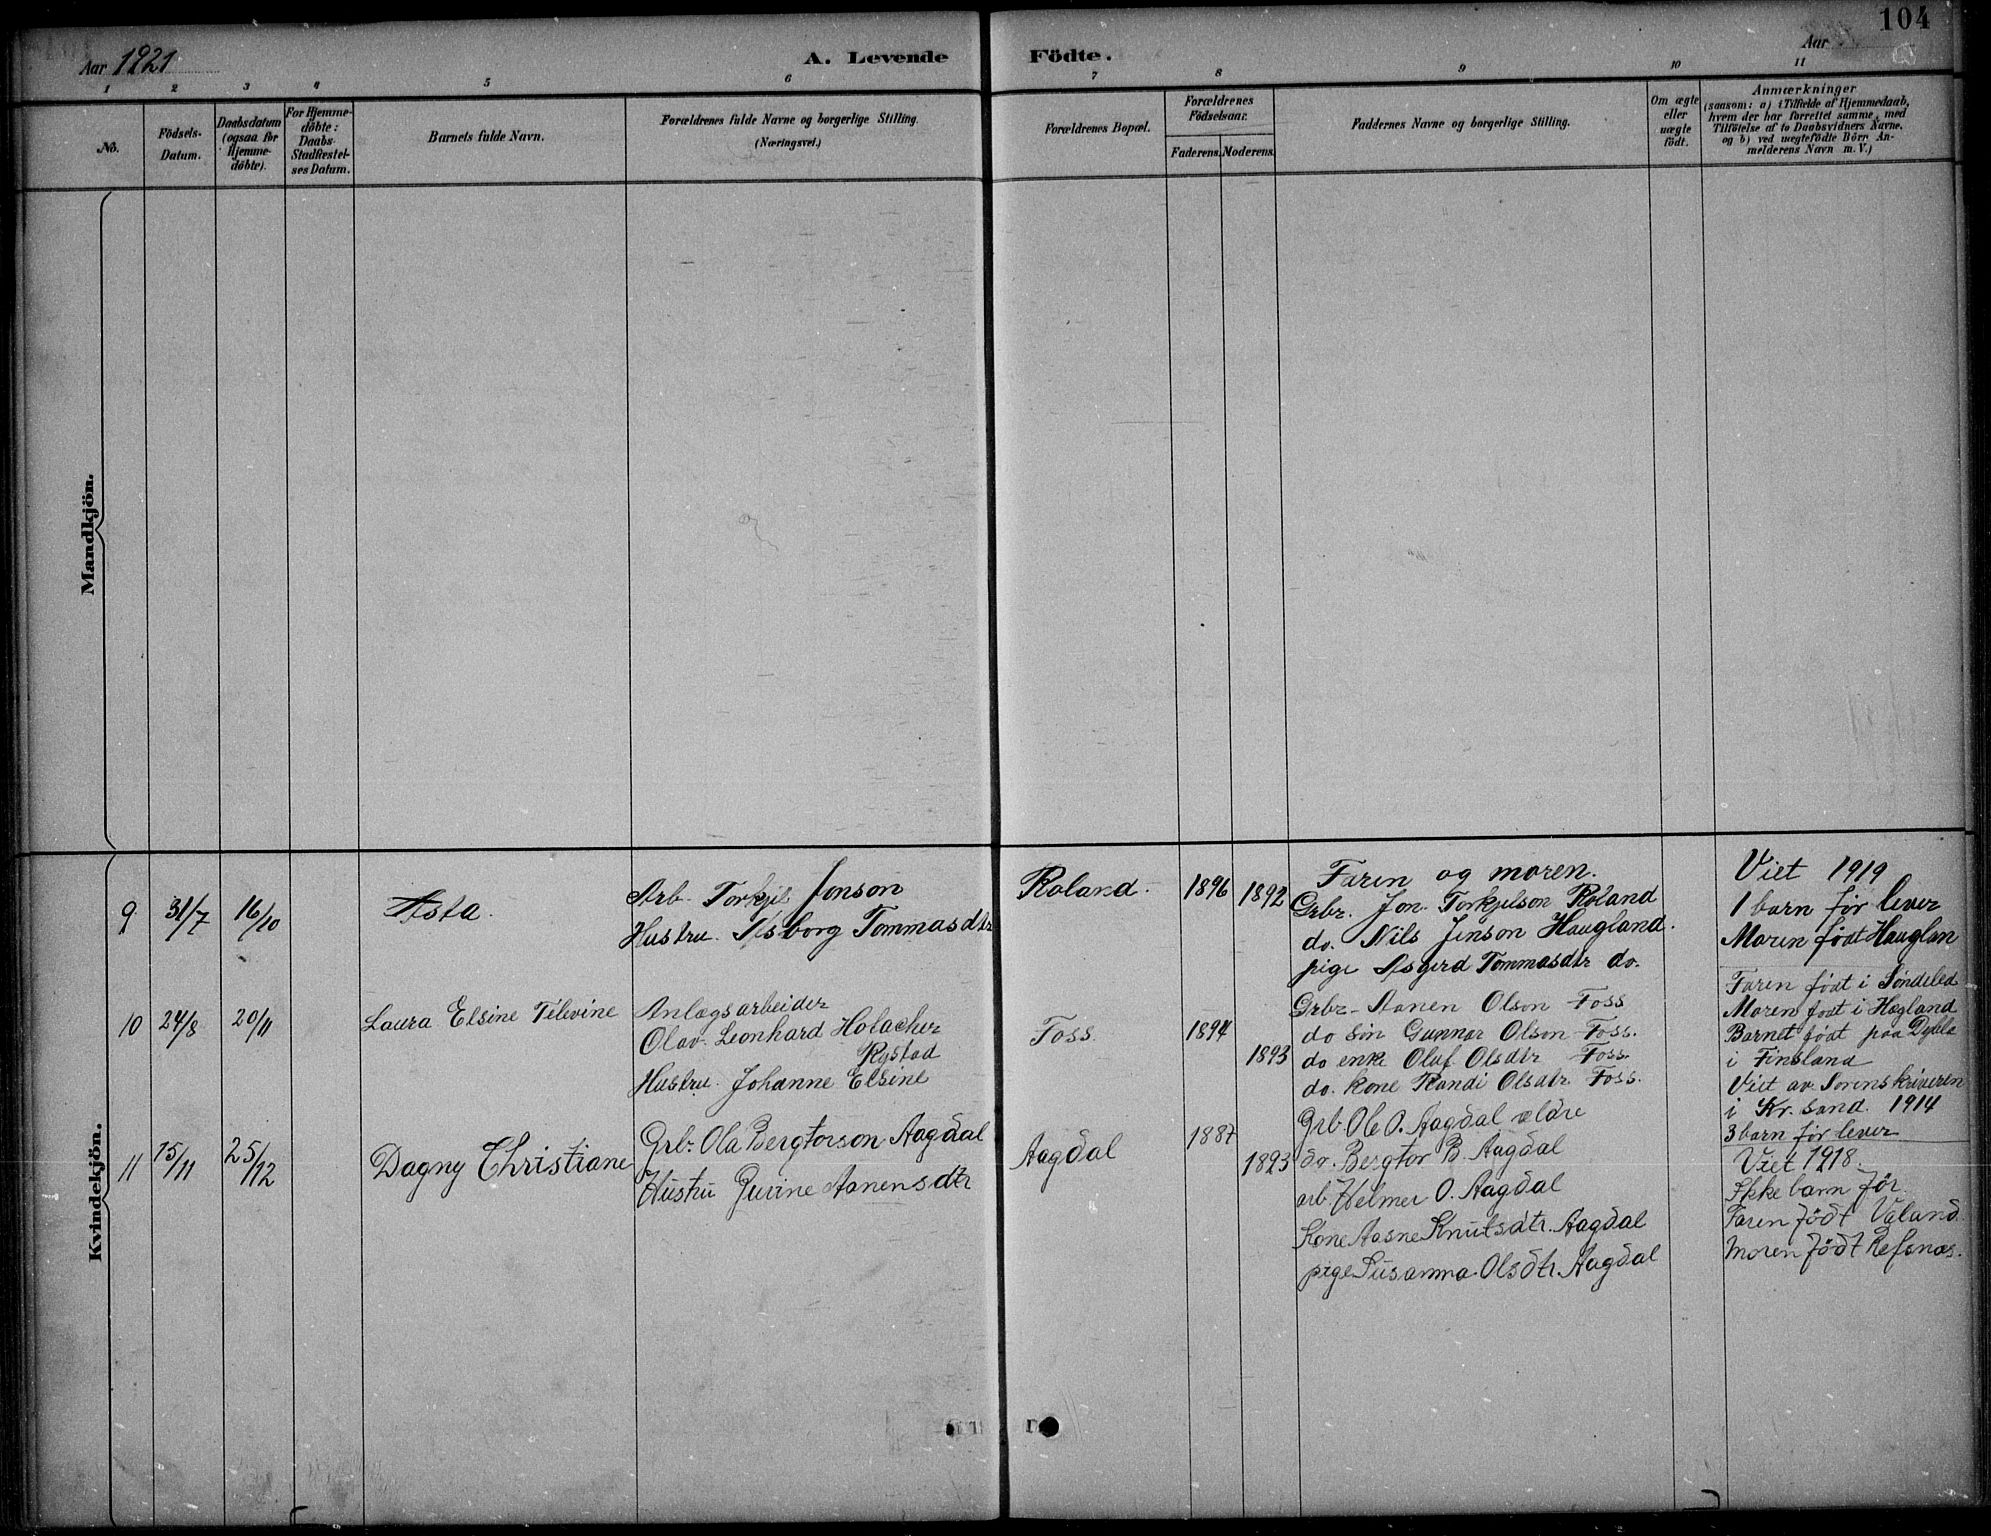 Aar 1921
A. Levende Födte.
Aar
104
1 2 3 4 5 6 7 8 9 10 11
No.
Födsels-Datum.
Daabsdatum (ogsaa for Hjemme-döbte).
For Hjemme-döbte: Daabs-Stadfæstel-ses Datum.
Barnets fulde Navn.
Forældrenes fulde Navne og borgerlige Stilling.
(Næringsvei.)
Forældrenes Bopæl.
Forældrenes Födselsaar.
Faderens. Moderens.
Faddernes Navne og borgerlige Stilling.
Om ægte eller uægte födt.
Anmærkninger
(saasom: a) i Tilfælde af Hjemmedaab, hvem der har forrettet samme, med Tilföielse af to Daabsvidners Navne, og b) ved uægtefödte Börn An-melderens Navn m. V.)
Mandkjön.
Kvindekjön.
9 31/7 16/10 Asta.
Arb. Torkjel Jonson
Hustru. Asborg Tommasdtr
Roland. 1896 1892
Faren og moren.
Grbr. Jon Torkjelson Roland
do. Nils Jenson Haugland.
pige Asgerd Tommasdtr do.
Viet 1919
1 barn før lever
Moren født Hauglan
10 24/8 20/11 Laura Elsine Televine
Anlægsarbeider
Olav Leonhard Holacher
Rystad
Hustru. Johanne Elsine
Foss. 1894 1893
Grbr Aanen Olson Foss
do søn Gunnar Olson Foss.
do enke Oluf Olsdtr Foss.
do. kone Randi Olsdtr. Foss.
Faren født i Søndeled
Moren født i Hægland
Barnet født paa
i Finsland
Viet av Sorenskriveren
i Kr.sand 1914
3 barn før lever
11 15/11 25/12 Dagny Christiane
Grbr. Ola Bergtorson Aagdal
Hustru Gurine Aanensdtr
Aagdal 1887 1893
Grb. Ole O. Aagdal ældre
do. Bergtor B. Aagdal
arb Helmer O. Aagdal
Kone Aasne Knutsdtr. Aagdal
pige Susanna Olsdtr. Aagdal
Viet 1918.
Ikke barn før
Faren født Valand
Moren født Refsnæs.